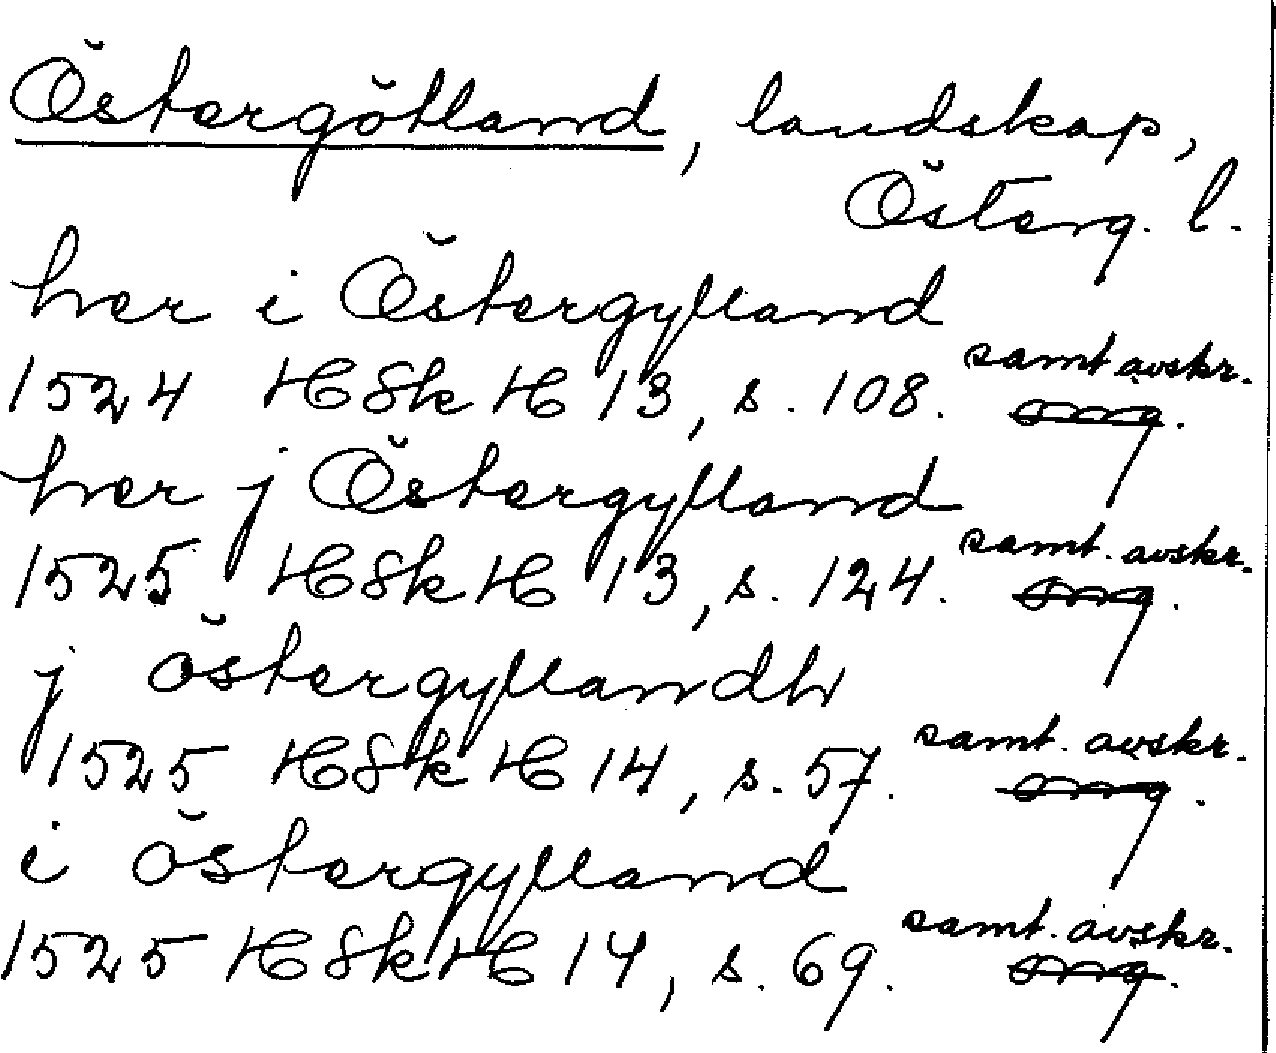 Östergötland, landskap,
Österg. l.
her i Östergylland
1524 HSH H 13, s. 108. samt avskr.
her j Östergylland
1525 HSH H 13, s. 124. samt. avskr.
j östergyllandh
1525 HSH H 14, s. 57. samt. avskr.
i östergylland
1525 HSH H 14, s. 69. samt. avskr.